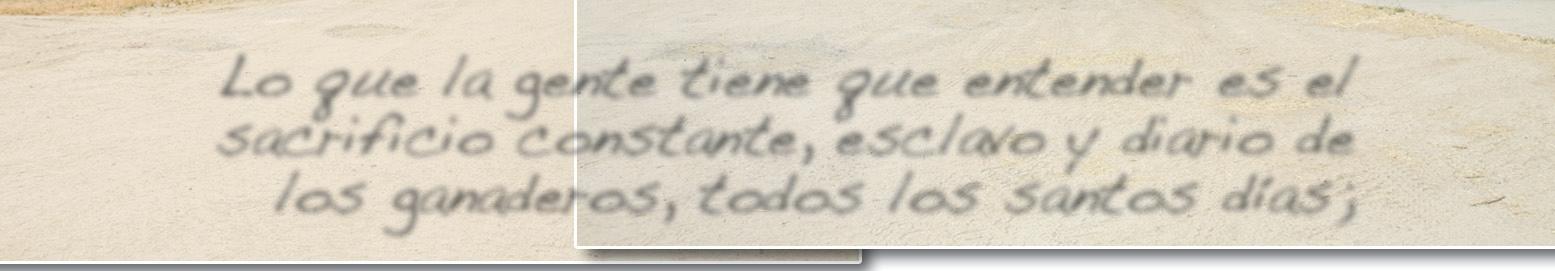 Lo que la gente tiene que entender es el
sacrificio constante, esclavo y diario de
los ganaderos, todos los santos días;